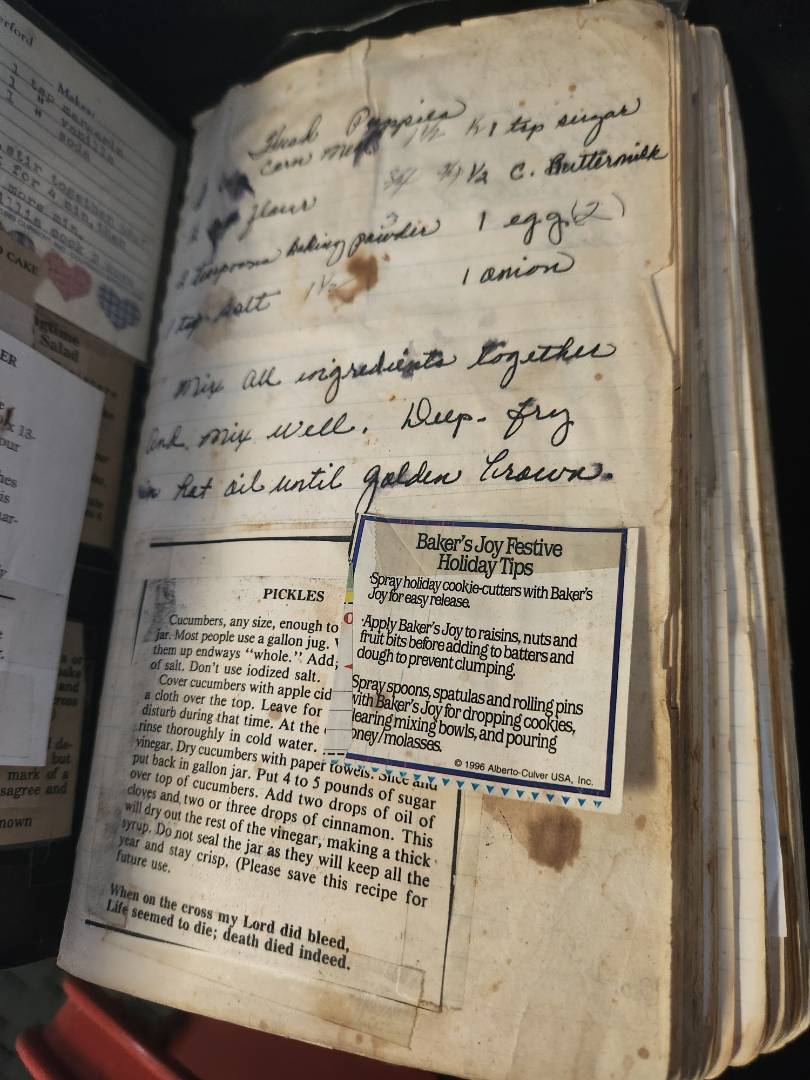 Hush Puppies
corn meal 1½ ½ 1 tsp sugar
flour ¾ ½ C. Buttermilk
2 teaspoons baking powder 3 1 egg (2)
1 tsp salt 1½ 1 onion
Mix all ingredients together
and mix well. Deep-fry
in hot oil until golden brown.
Baker's Joy Festive
Holiday Tips
·Spray holiday cookie-cutters with Baker's
Joy for easy release.
·Apply Baker's Joy to raisins, nuts and
fruit bits before adding to batters and
dough to prevent clumping.
Spray spoons, spatulas and rolling pins
with Baker's Joy for dropping cookies,
clearing mixing bowls, and pouring
oney/molasses.
© 1996 Alberto-Culver USA, Inc.
PICKLES
Cucumbers, any size, enough to
jar. Most people use a gallon jug.
them up endways "whole." Add;
of salt. Don't use iodized salt.
Cover cucumbers with apple cid
a cloth over the top. Leave for
disturb during that time. At the
rinse thoroughly in cold water.
vinegar. Dry cucumbers with paper towels. Slice and
put back in gallon jar. Put 4 to 5 pounds of sugar
over top of cucumbers. Add two drops of oil of
cloves and two or three drops of cinnamon. This
will dry out the rest of the vinegar, making a thick
syrup. Do not seal the jar as they will keep all the
year and stay crisp. (Please save this recipe for
future use.
When on the cross my Lord did bleed,
Life seemed to die; death died indeed.
erford
Makes:
1 tsp
1 " vanilla
1 " soda
stir together
for 4 min,
more min.
CAKE
Salad
ER
13-
our
hes
is
ar-
or
and
de-
but
mark of a
sagree and
nown